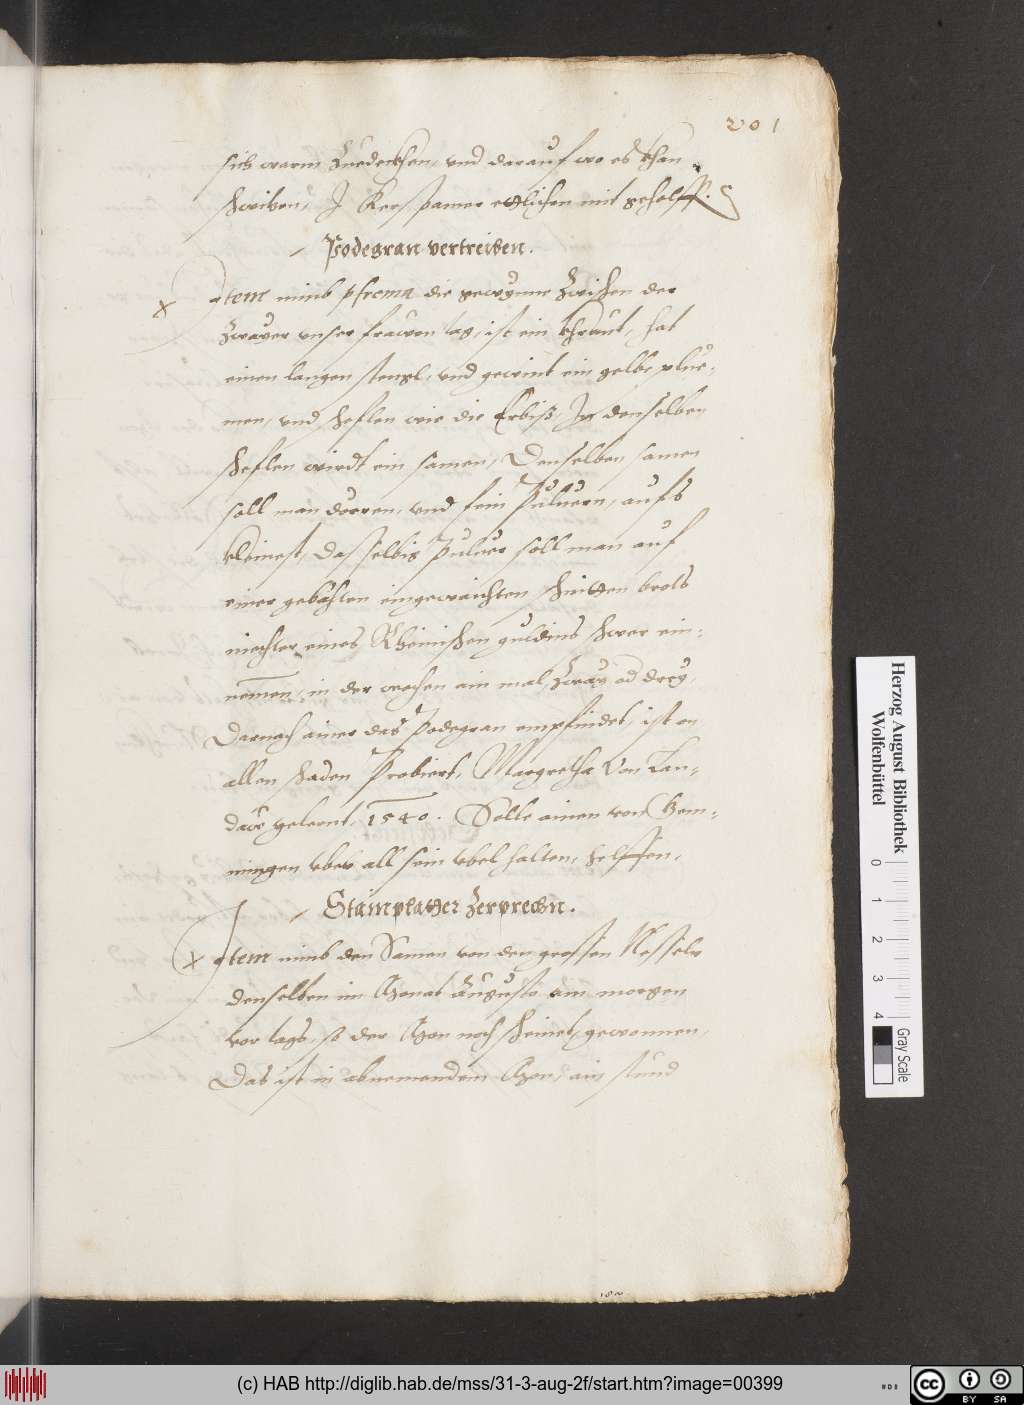 201
sich warm Zuedeckhen, vnd darauf wo es khan
schwitzen, J Kers pamer ettlichen mit geholffn.
Podegran vertreiben.
x Jtem nimb pfroma die gewynne Zwischen der
Zwayer vnser frawen tag, ist ein khraut, hat
einen langen stengl, vnd gewint ein gelbe plue-
men, vnd scheflen wie die Erbiß, Jn denselben
scheflen wirdt ein samen, Denselben samen
soll man dörren, vnd fein puluern, aufs
kleinest, dasselbig puluer soll man auf
einer gebähten eingewaichten schnitten brots
niechter eines Rheinischen guldins schwer ein-
nemen, in der wochen ein mal Zway od drey,
Darnach ainer das podegran empfindet, ist on
allen schaden Probiert, Margretha Von Lan-
daw gelernt, 1540. Solle ainen von Gem-
mingen vber all sein vbel halten, helffen,
Stainplatter Zerprechn.
x Jtem nimb den Samen von den grossen Nesseln
denselben im Monat Augusto am morgen
vor tags, so der Mon noch scheinet, gewonnen,
Das ist in abnemendem Mon, ain stund
Herzog August Bibliothek
Wolfenbüttel
0 1 2 3 4
Gray Scale
(c) HAB http://diglib.hab.de/mss/31-3-aug-2f/start.htm?image=00399
cc BY SA